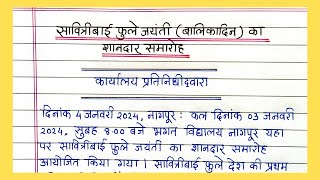 सावित्रीबाई फुले जयंती (बालिकादिन) का
शानदार समारोह
कार्यालय प्रतिनिधीद्वारा
दिनांक 4 जनवरी 2024, नागपुर : कल दिनांक 03 जनवरी
2024, सुबह 8:00 बजे भगत विद्यालय नागपुर यहा
पर सावित्रीबाई फुले जयंती का शानदार समारोह
आयोजित किया गया । सावित्रीबाई फुले देश की प्रथम